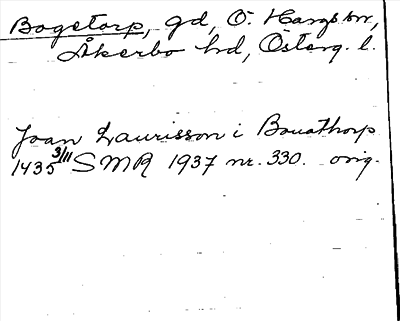 Bogetorp, gd, Ö. Hargs sn,
Åkerbo hd, Österg. l.
Joan Laurisson i Bouathorp
1435 3/11 SMR 1937 nr. 330. orig.